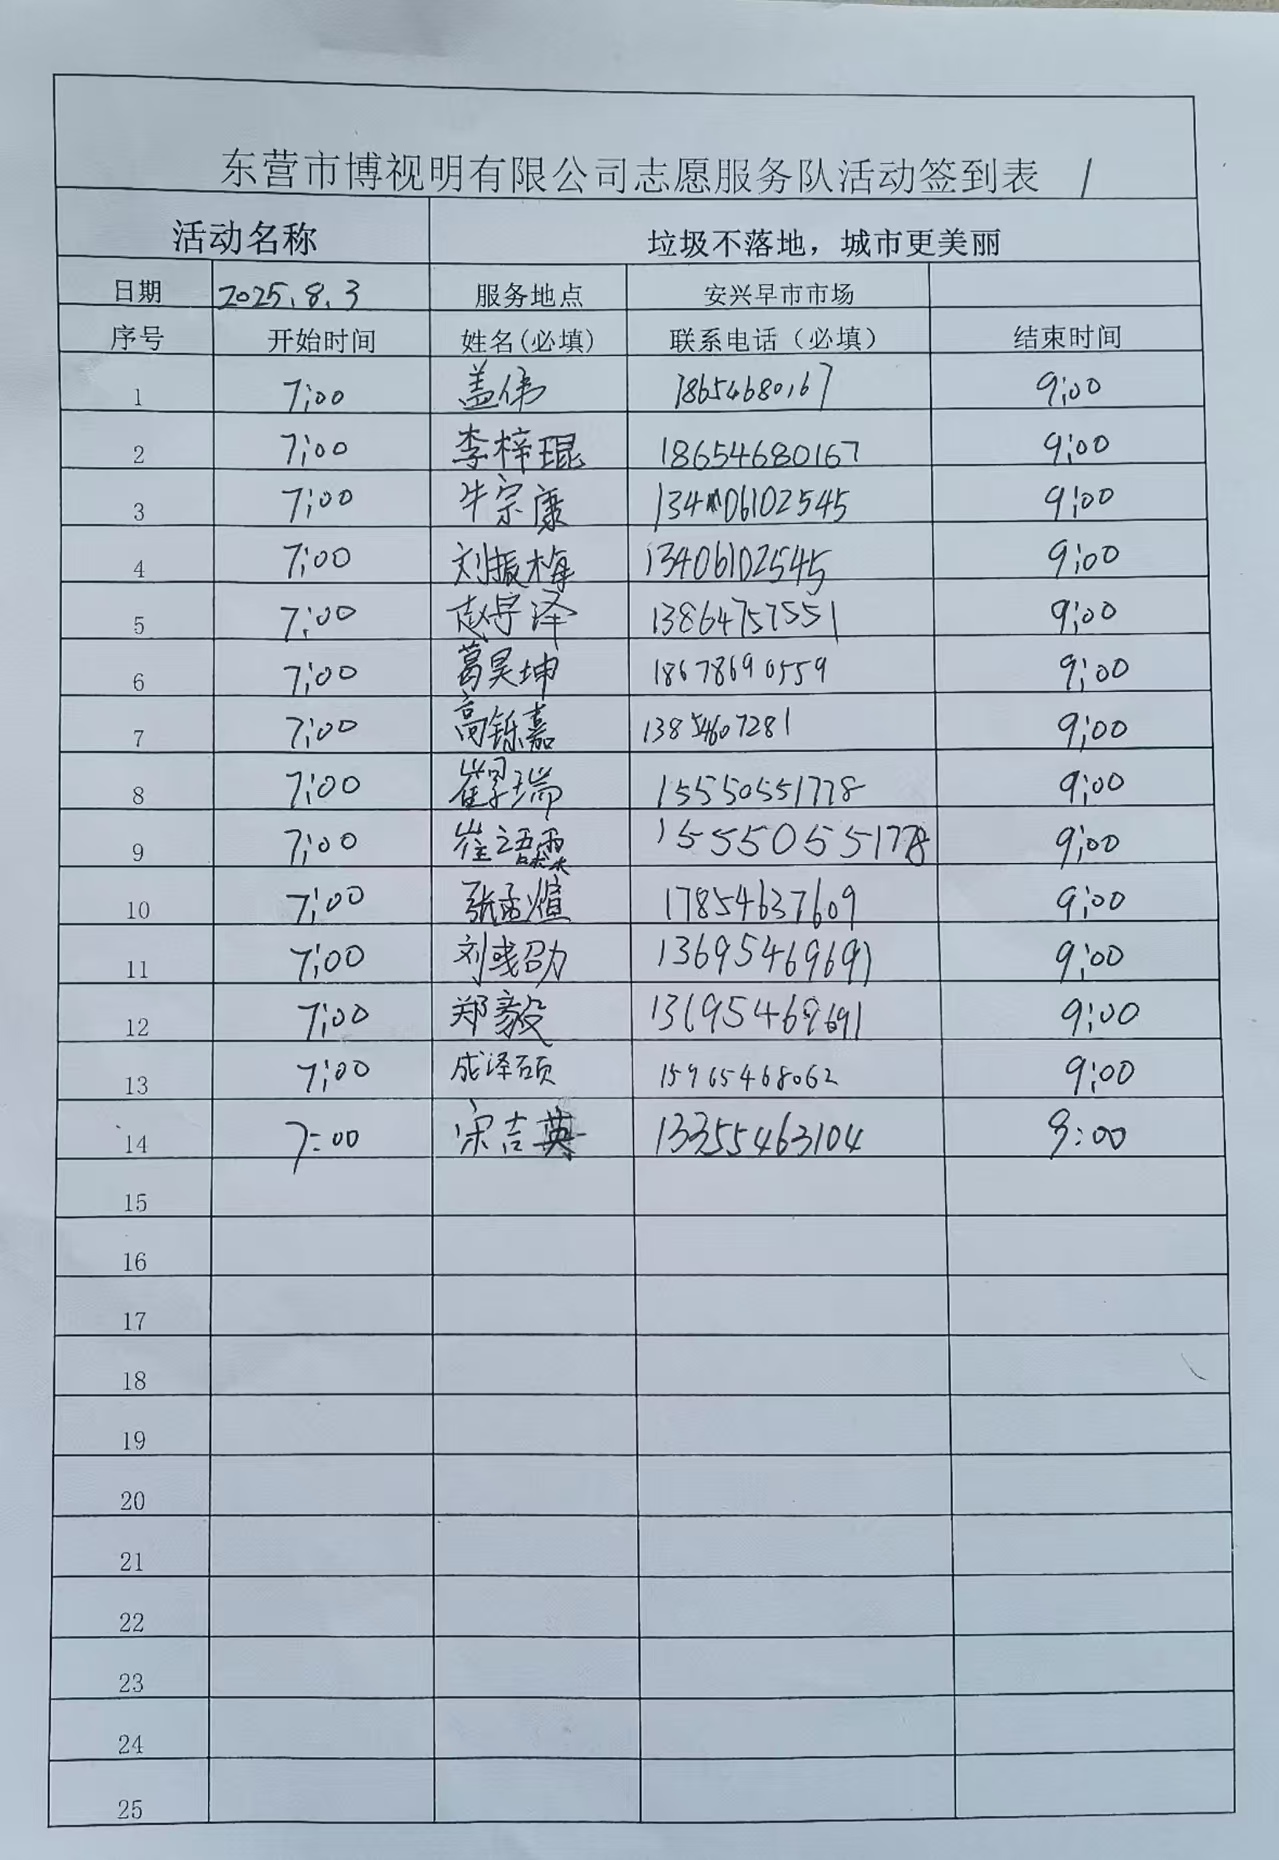 东营市博视明有限公司志愿服务队活动签到表 1
活动名称 垃圾不落地，城市更美丽
日期 2025.8.3 服务地点 安兴早市市场
序号 开始时间 姓名(必填) 联系电话（必填） 结束时间
1 7:00 盖伟 18654680167 9:00
2 7:00 李梓琨 18654680167 9:00
3 7:00 牛宗康 13406102545 9:00
4 7:00 刘振梅 13406102545 9:00
5 7:00 赵宇泽 13864757551 9:00
6 7:00 葛昊坤 18678690559 9:00
7 7:00 高铄嘉 13854607281 9:00
8 7:00 崔瑞 15550551778 9:00
9 7:00 崔语 15550551778 9:00
10 7:00 张孟煊 17854637609 9:00
11 7:00 刘彧劭 13695469691 9:00
12 7:00 郑毅 13695469691 9:00
13 7:00 成泽硕 15965468062 9:00
14 7:00 宋吉英 13355463104 9:00
15
16
17
18
19
20
21
22
23
24
25